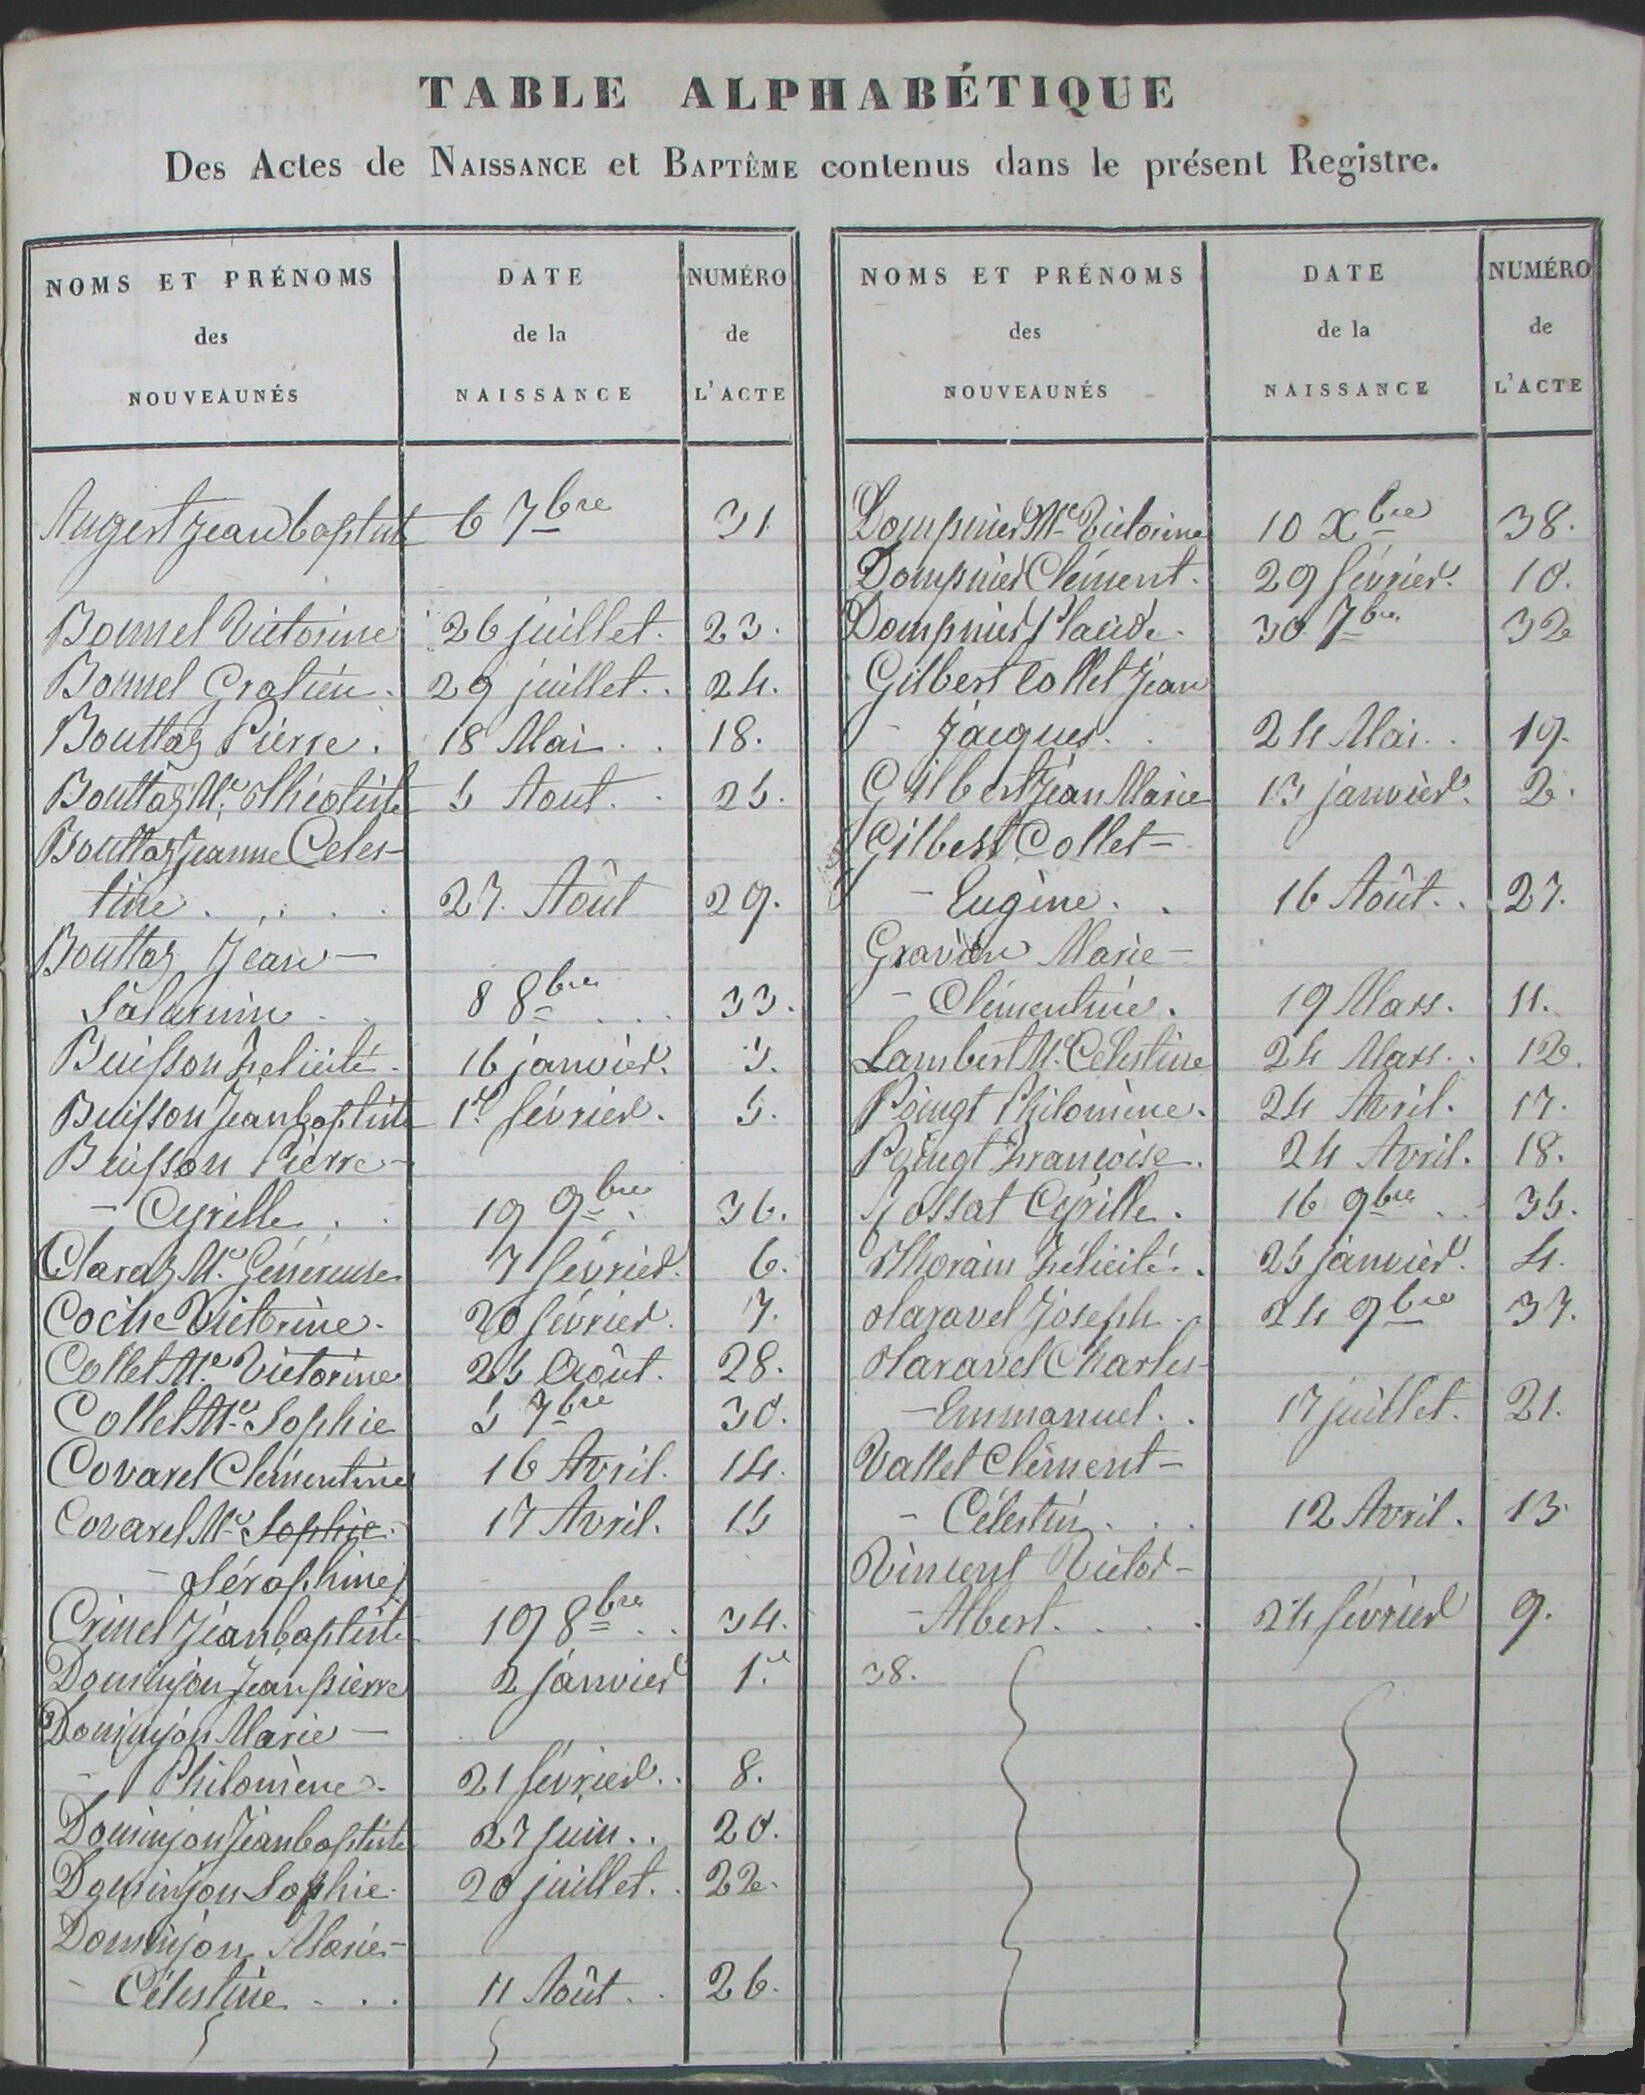 TABLE ALPHABÉTIQUE
Des Actes de NAISSANCE et BAPTÊME contenus dans le présent Registre.
NOMS ET PRÉNOMS
des
NOUVEAUNÉS
DATE
de la
NAISSANCE
NUMÉRO
de
L'ACTE
Augert Jean baptiste 6 7bre 31
Bonnel Victorine 26 juillet. 23.
Bonnel Gratien. 29 juillet.. 24.
Bouttaz Pierre. 18 Mai.. 18.
Bouttaz Mie Théotiste 5 Aout.. 25.
Bouttaz Jeanne Celes-
tine.... 27. Août 29.
Bouttaz Jean-
Saturnin.. 8 8bre... 33.
Buisson Felicité. 16 janvier. 3.
Buisson Jean baptiste 1er février. 5.
Buisson Pierre-
- Cyrille.. 19 9bre. 36.
Claraz Mie Généreuse 7 février. 6.
Coche Victorine. 20 février. 7.
Collet Mie Victorine 25 Août. 28.
Collet Mie Sophie 5 7bre 30.
Covarel Clémentine 16 Avril. 14.
Covarel Mie Sophie. 17 Avril. 15
- Séraphine
Crinel Jean baptiste 19 8bre.. 34.
Dominjon Jean pierre 2 janvier 1er
Dominjon Marie-
- Philomène. 21 février.. 8.
Dominjon Jean baptiste 27 juin.. 20.
Dominjon Sophie. 20 juillet.. 22.
Dominjon Marie-
- Célestine... 11 Août.. 26.
NOMS ET PRÉNOMS
des
NOUVEAUNÉS
DATE
de la
NAISSANCE
NUMÉRO
de
L'ACTE
Dompnier Mie Victorine 10 Xbre 38.
Dompnier Clément. 29 février. 10.
Dompnier Placide. 30 7bre 32
Gilbert Collet Jean
- Jacques.. 24 Mai.. 19.
Gilbert Jean Marie 13 janvier. 2.
Gilbert Collet-
- Eugène.. 16 Août.. 27.
Gravier Marie-
- Clémentine. 19 Mars. 11.
Lambert Mie Célestine 24 Mars.. 12.
Poingt Philomène. 24 Avril. 17.
Poingt Françoise. 24 Avril. 18.
Rossat Cyrille. 16 9bre.. 35.
Thorain Félicité. 25 janvier. 4.
Taravel Joseph.. 24 9bre 37.
Taravel Charles-
- Emmanuel.. 17 juillet. 21.
Vallet Clément-
- Célestin... 12 Avril. 13.
Vincent Victor-
- Albert.... 24 février 9.
38.